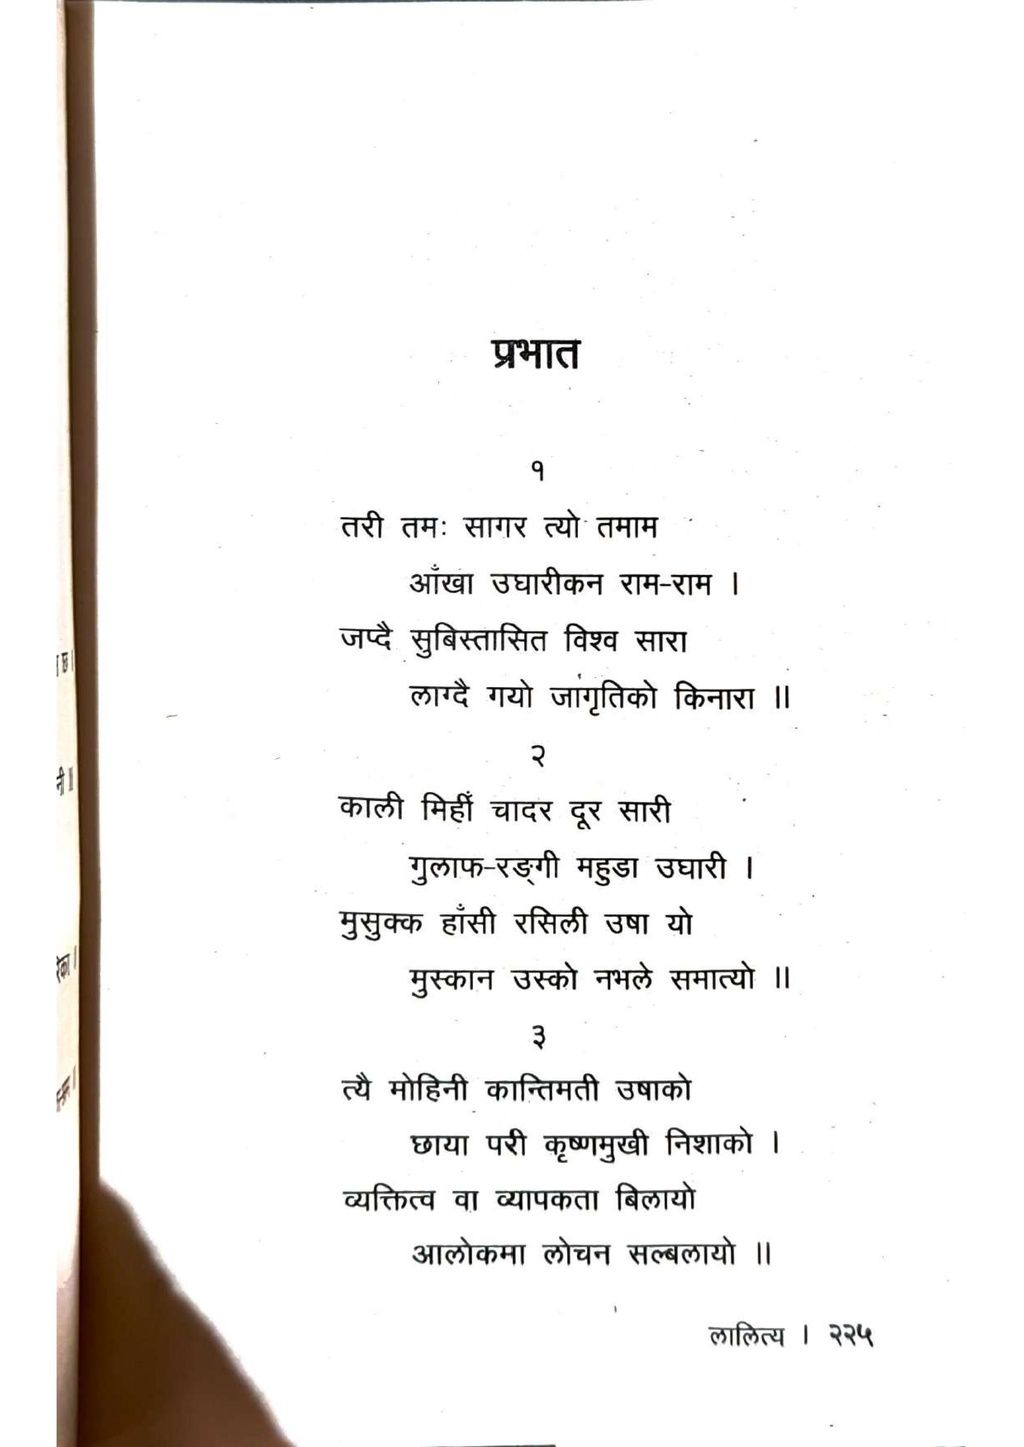 प्रभात
१
तरी तमः सागर त्यो तमाम
आँखा उघारीकन राम-राम ।
जप्दै सुबिस्तासित विश्व सारा
लाग्दै गयो जागृतिको किनारा ॥
२
काली मिहीँ चादर दूर सारी
गुलाफ-रङ्गी महुडा उघारी ।
मुसुक्क हाँसी रसिली उषा यो
मुस्कान उस्को नभले समात्यो ॥
३
त्यै मोहिनी कान्तिमती उषाको
छाया परी कृष्णमुखी निशाको ।
व्यक्तित्व वा व्यापकता बिलायो
आलोकमा लोचन सल्बलायो ॥
लालित्य । २२५